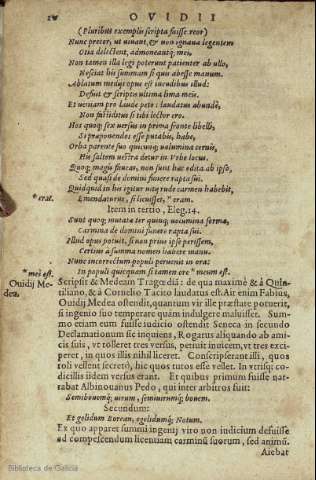 OVIDII
(Pluribus exemplis scripta fuisse reor)
Nunc precor, ut uiuant, & non ignaua legentem
Otia delectent, admoneantq; mei.
Non tamen illa legi poterunt patienter ab ullo,
Nesciat his summam si quis abesse manum.
Ablatum medijs opus est incudibus illud:
Defuit & scriptis ultima lima meis.
Et ueniam pro laude peto: laudatus abundè,
Non fastiditus si tibi lector ero.
Hos quoq; sex uersus in prima fronte libelli,
Si praeponendos esse putabis, habe,
Orba parente suo quicunq; uolumina cernis,
His saltem uestra detur in Vrbe locus.
Quoq; magis faueas, non sunt haec edita ab ipso,
Sed quasi de domini funere rapta sui.
Quidquid in his igitur uitij rude carmen habebit,
* erat.
Emendaturus, si licuisset, * eram.
Item in tertio, Eleg. 14.
Sunt quoq; mutatae ter quinq; uolumina formae,
Carmina de domini funere rapta sui.
Illud opus potuit, si non prius ipse perissem,
Certius à summa nomen habere manu.
Nunc incorrectum populi peruenit in ora:
* mei est.
In populi quicquam si tamen ore * meum est.
Ouidij Me-
dea.
Scripsit & Medeam Tragœdiã: de qua maximè & à Quin-
tiliano, & à Cornelio Tacito laudatus est. Ait enim Fabius,
Ouidij Medea ostendit, quantum vir ille præstare potuerit,
si ingenio suo temperare quàm indulgere maluisset. Sum-
mo etiam eum fuisse iudicio ostendit Seneca in secundo
Declamationum sic inquiens, Rogatus aliquando ab ami-
cis suis, vt tolleret tres versus, petiuit inuicem, vt tres exci-
peret, in quos illis nihil liceret. Conscripserant illi, quos
roli vellent secretò, hic quos tutos esse vellet. In vtrisq; co-
dicillis iidem versus erant. Et quibus primum fuisse nar-
rabat Albinouanus Pedo, qui inter arbitros fuit:
Semibouemq; uirum, semiuirumq; bouem.
Secundum:
Et gelidum Borean, egelidumq; Notum.
Ex quo apparet summi ingenij viro non iudicium defuisse
ad compescendum licentiam carminũ suorum, sed animũ.
Aiebat
Biblioteca de Galicia